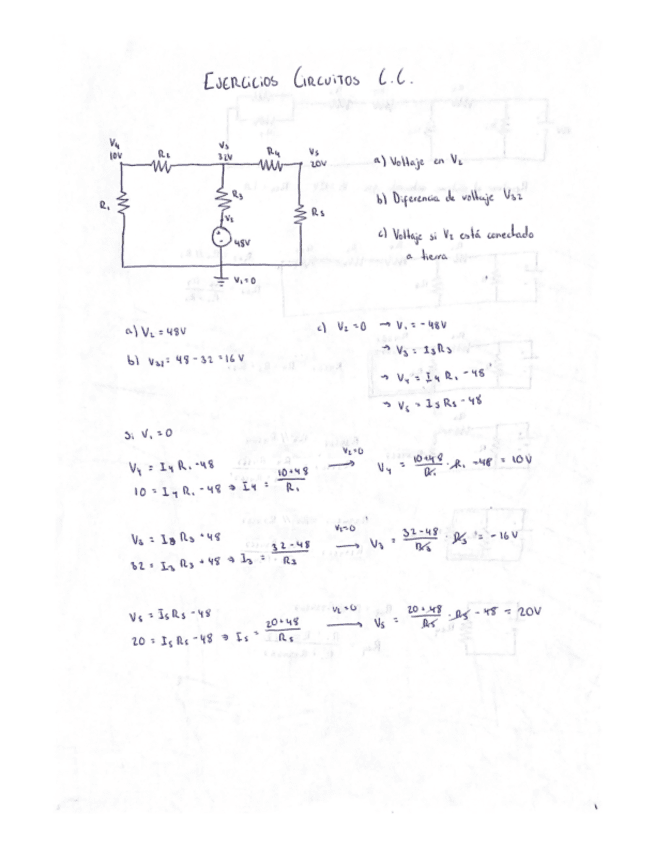 EJERCICIOS CIRCUITOS C.C.
V4
10V
R2
V3
32V
R4
V5
20V
R1
R3
V2
48V
R5
V1=0
a) Voltaje en V2
b) Diferencia de voltaje V32
c) Voltaje si V2 está conectado
a tierra
a) V2 = 48V
b) V32 = 48 - 32 = 16 V
c) V2 = 0 → V1 = -48V
→ V3 = I3R3
→ V4 = I4 R1 - 48
→ V5 = I5 R5 - 48
Si V1 = 0
V4 = I4 R1 - 48
10 = I4 R1 - 48 ⇒ I4 = 10+48 / R1
V2=0 → V4 = 10+48 / R1 · R1 - 48 = 10V
V3 = I3 R3 + 48
32 = I3 R3 + 48 ⇒ I3 = 32-48 / R3
V2=0 → V3 = 32-48 / R3 · R3 = -16V
V5 = I5R5 - 48
20 = I5 R5 - 48 ⇒ I5 = 20+48 / R5
V2=0 → V5 = 20+48 / R5 · R5 - 48 = 20V